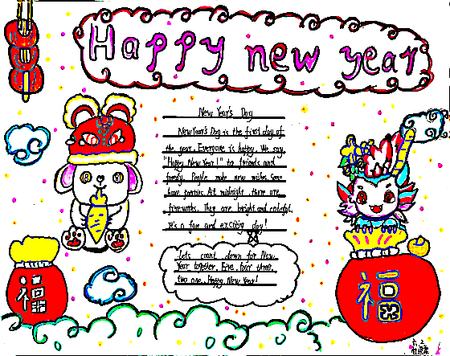 Happy new year
New Year's Dog
New Year's Dog is the first day of
the year. Everyone is happy. We say
"Happy New Year!" to friends and
family. People make new wishes. Some
have parties. At midnight there are
fireworks. They are bright and colorful.
It's a fun and exciting day!
Lets count down for New
Year together, Five, four, three,
two one, Happy New Year!
福
福